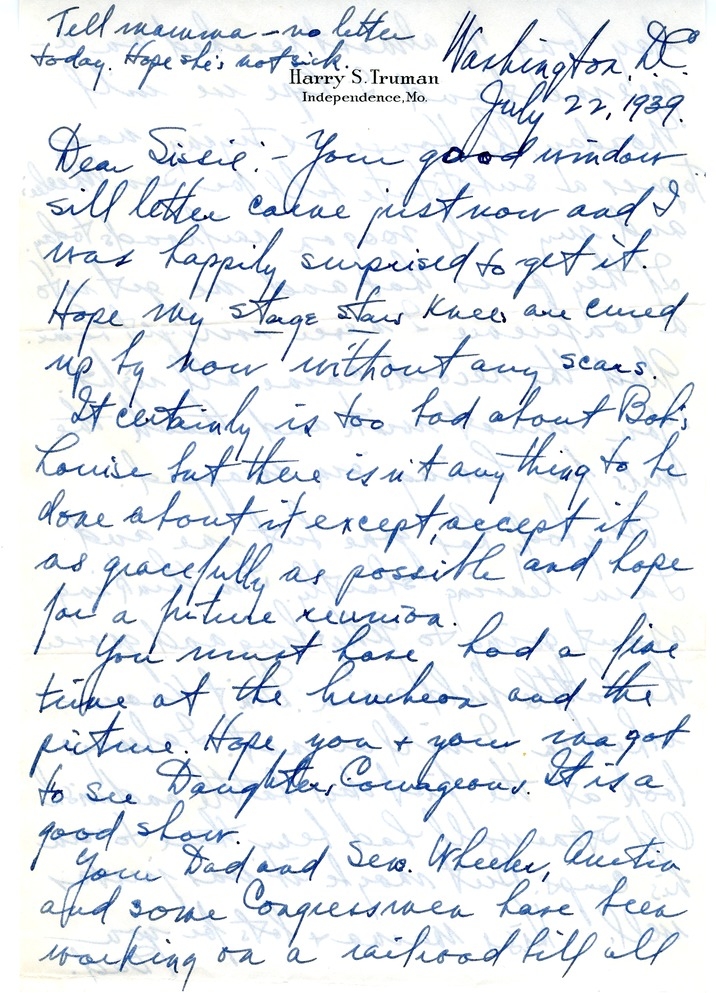 Tell mamma - no letter
today. Hope she's not sick.
Harry S. Truman
Independence, Mo.
Washington, D.C.
July 22, 1939.
Dear Sissie:- Your good window
sill letter came just now and I
was happily surprised to get it.
Hope my stage star knees are cured
up by now without any scars.
It certainly is too bad about Bob's
Louise but there isn't anything to be
done about it except, accept it
as gracefully as possible and hope
for a future reunion.
You must have had a fine
time at the luncheon and the
picture. Hope you + your ma got
to see Daughters Courageous. It is a
good show.
Your Dad and Sens. Wheeler, Austin
and some Congressmen have been
working on a railroad bill all